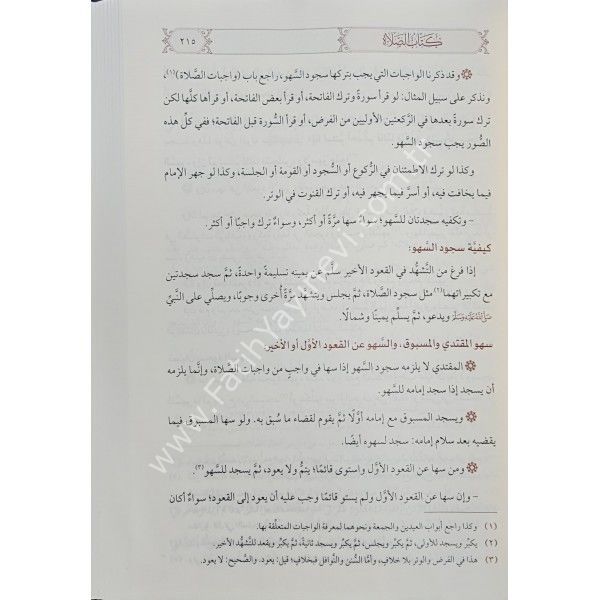 كتاب الصلاة
٢١٥
وقد ذكرنا الواجبات التي يجب بتركها سجود السَّهو، راجع باب (واجبات الصَّلاة)(١)،
ونذكر على سبيل المثال: لو قرأ سورةً وترك الفاتحة، أو قرأ بعض الفاتحة، أو قرأها كلَّها لكن
ترك سورةً بعدها في الرَّكعتين الأوليين من الفرض، أو قرأ السُّورة قبل الفاتحة؛ ففي كلِّ هذه
الصُّور يجب سجود السَّهو.
وكذا لو ترك الاطمئنان في الرُّكوع أو السُّجود أو القومة أو الجلسة، وكذا لو جهر الإمام
فيما يخافت فيه، أو أسرَّ فيما يجهر فيه، أو ترك القنوت في الوتر.
– وتكفيه سجدتان للسَّهو؛ سواءٌ سها مرَّةً أو أكثر، وسواءٌ ترك واجبًا أو أكثر.
كيفيَّة سجود السَّهو:
إذا فرغ من التَّشهُّد في القعود الأخير سلَّم عن يمينه تسليمةً واحدةً، ثمَّ سجد سجدتين
مع تكبيراتهما(٢) مثل سجود الصَّلاة، ثمَّ يجلس ويتشهَّد مرَّةً أخرى وجوبًا، ويصلِّي على النَّبيِّ
ﷺ ويدعو، ثمَّ يسلِّم يمينًا وشمالًا.
سهو المقتدي والمسبوق، والسَّهو عن القعود الأوَّل أو الأخير:
المقتدي لا يلزمه سجود السَّهو إذا سها في واجبٍ من واجبات الصَّلاة، وإنَّما يلزمه
أن يسجد إذا سجد إمامه للسَّهو.
ويسجد المسبوق مع إمامه أوَّلًا ثمَّ يقوم لقضاء ما سُبق به. ولو سها المسبوق فيما
يقضيه بعد سلام إمامه: سجد لسهوه أيضًا.
ومن سها عن القعود الأوَّل واستوى قائمًا؛ يتمُّ ولا يعود، ثمَّ يسجد للسَّهو(٣).
– وإن سها عن القعود الأوَّل ولم يستوِ قائمًا وجب عليه أن يعود إلى القعود؛ سواءٌ أكان
(١) وكذا راجع أبواب العيدين والجمعة ونحوهما لمعرفة الواجبات المتعلِّقة بها.
(٢) يكبِّر ويسجد للأولى، ثمَّ يكبِّر ويجلس، ثمَّ يكبِّر ويسجد ثانيةً، ثمَّ يكبِّر ويقعد للتَّشهُّد الأخير.
(٣) هذا في الفرض والوتر بلا خلافٍ، وأمَّا السُّنن والنَّوافل فبخلافٍ؛ قيل: يعود. والصَّحيح: لا يعود.
www.FatihYayinevi.com.tr